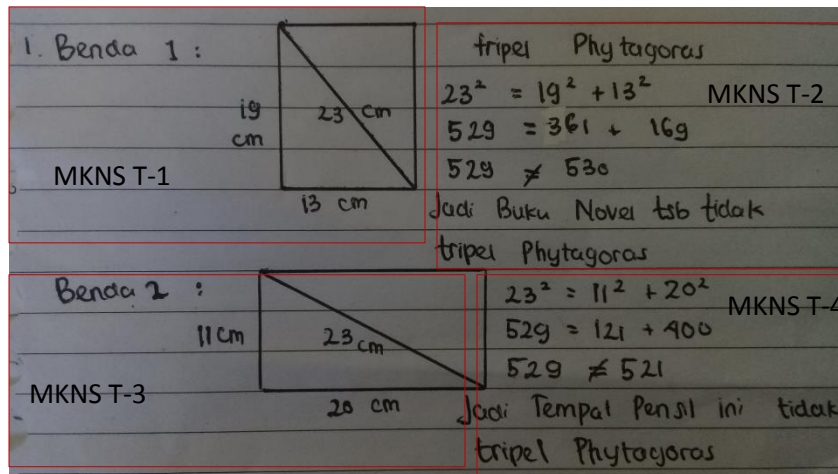 1. Benda 1 :
19 cm
23 cm
13 cm
MKNS T-1
tripel Phytagoras
23² = 19² + 13²
MKNS T-2
529 = 361 + 169
529 ≠ 530
Jadi Buku Novel tsb tidak
tripel Phytagoras
Benda 2 :
11 cm
23 cm
20 cm
MKNS T-3
23² = 11² + 20²
MKNS T-4
529 = 121 + 400
529 ≠ 521
Jadi Tempal Pensil ini tidak
tripel Phytagoras